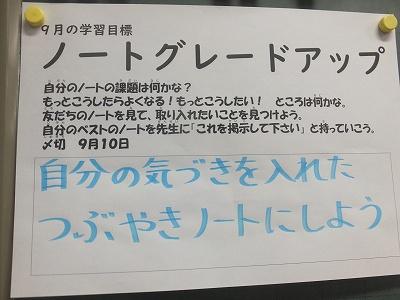 9月の学習目標
ノートグレードアップ
自分のノートの課題は何かな？
もっとこうしたらよくなる！もっとこうしたい！　ところは何かな。
友だちのノートを見て、取り入れたいことを見つけよう。
自分のベストのノートを先生に「これを掲示して下さい」と持っていこう。
〆切　9月10日
自分の気づきを入れた
つぶやきノートにしよう